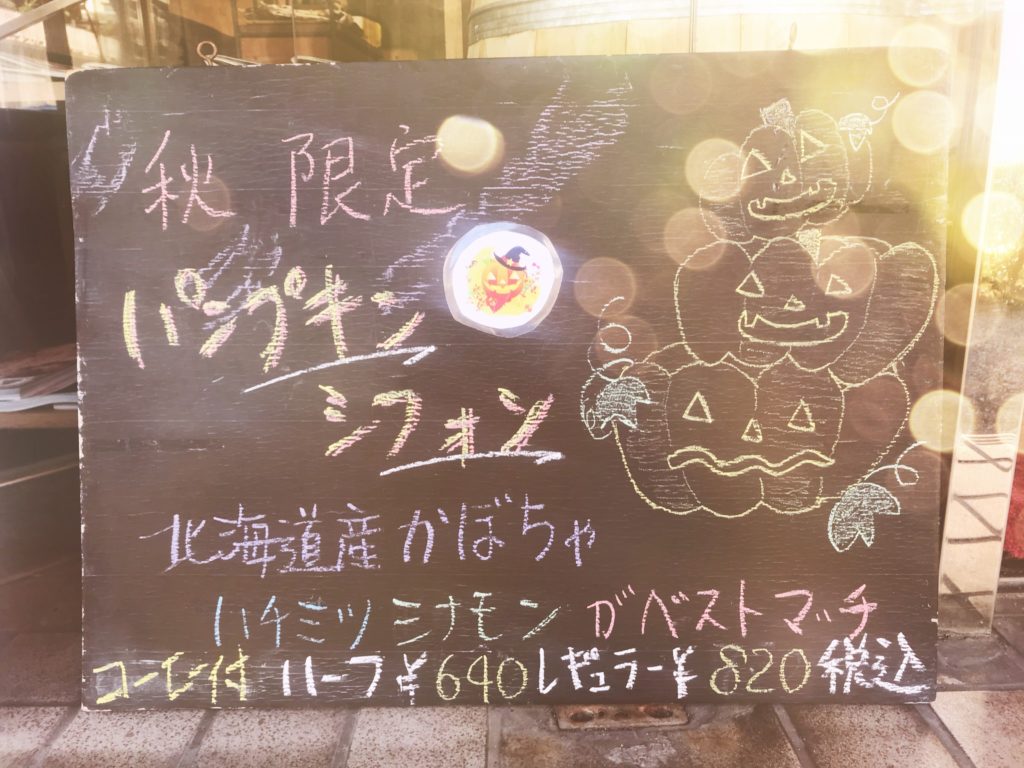 秋 限定
パンプキン
シフォン
北海道産かぼちゃ
ハチミツ シナモン がベストマッチ
コーヒー付 ハーフ¥640 レギュラー¥820 税込